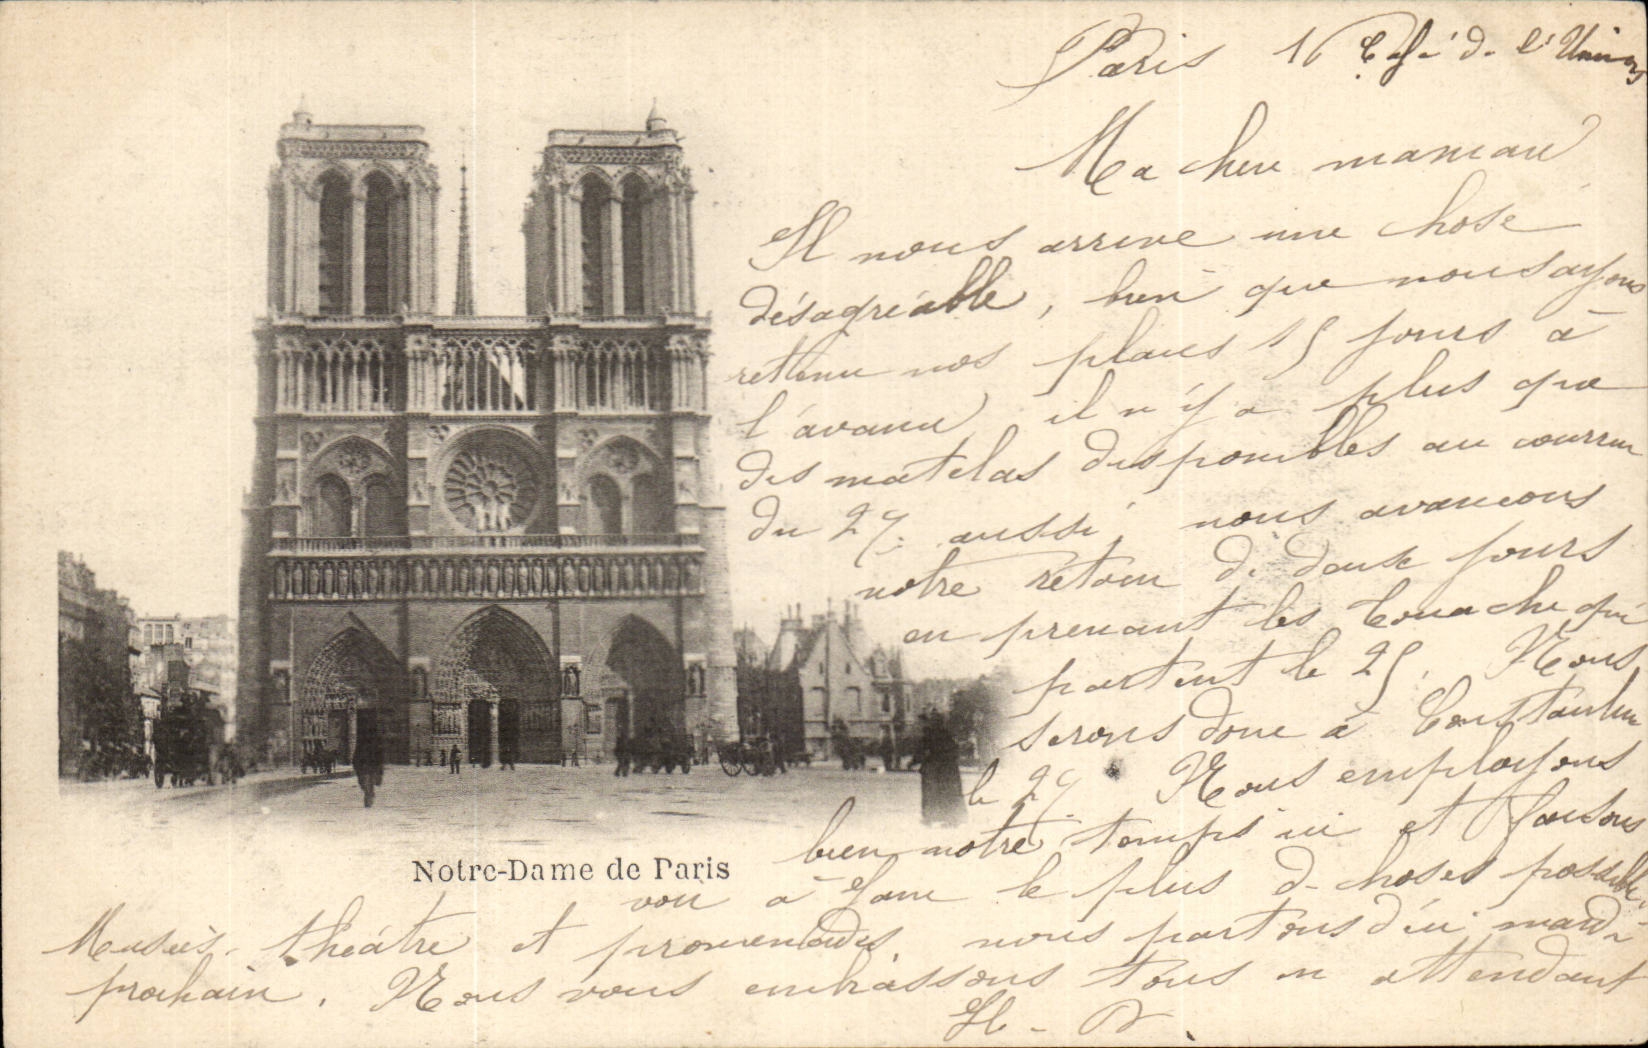 Paris 16 Café de l'Univers
Ma chere maman
Il nous arrive une chose
désagréable, bien que nous ayons
retenu nos places 15 jours à
l'avance il n'y a plus que
des matelas disponibles au courrier
du 27. aussi nous avancons
notre retour de deux jours
en prenant les Touache qui
partent le 25. Nous
serons donc à Constantine
le 27. Nous employons
bien notre temps ici et faisons
Notre-Dame de Paris
voir à Jane le plus de choses possible,
Musées, théatre et promenades nous partons d'ici mardi
prochain. Nous vous embrassons tous en attendant
H. D.